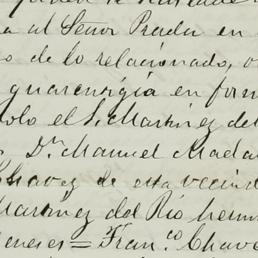 a al Señor Prada en
o de lo relacionado, o
guarentigia en form
dolo el S. Martinez del
Dn. Manuel Mada
Chavez de esta vecind
Martinez del Rio herm
eneses = Fran.co Chave